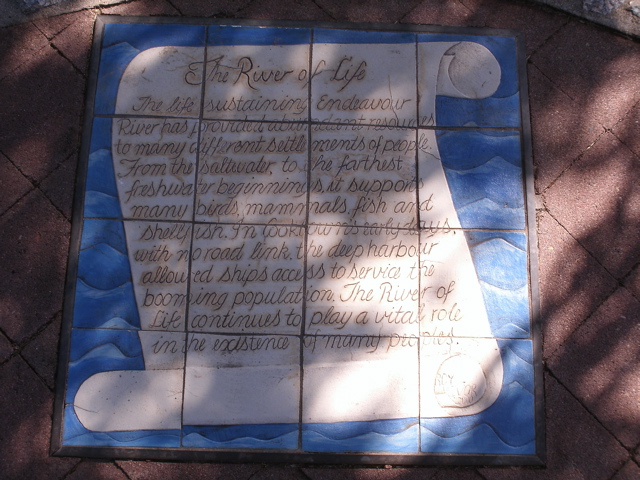 The River of Life
The life sustaining Endeavour
River has provided abundant resources
to many different settlements of people.
From the saltwater, to the farthest
freshwater beginnings, it supports
many birds, mammals, fish and
shellfish. In Cooktown's early days,
with no road link, the deep harbour
allowed ships access to service the
booming population. The River of
Life continues to play a vital role
in the existence of many peoples.